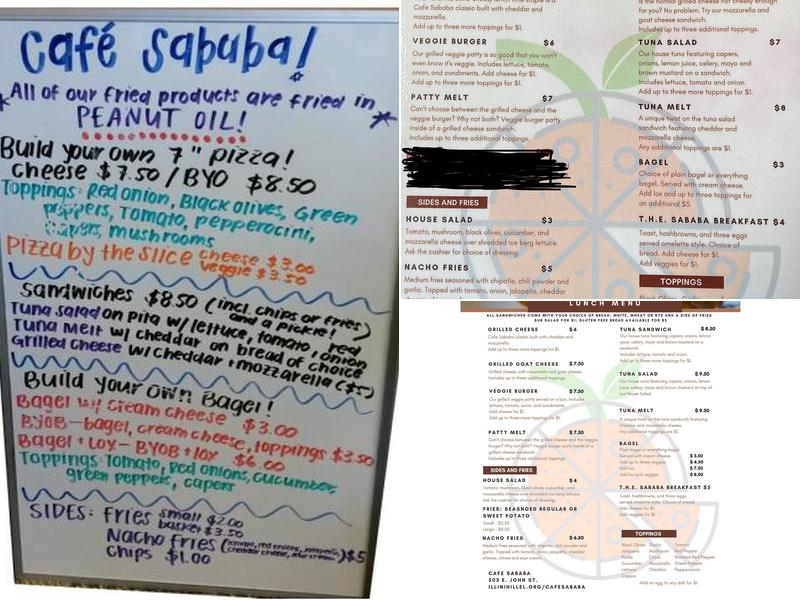 Café Sababa!
All of our fried products are fried in
PEANUT OIL!
Build your own 7" pizza!
cheese $7.50 / BYO $8.50
Toppings: Red onion, Black olives, Green
peppers, Tomato, pepperocini,
capers, mushrooms
Pizza by the slice cheese $3.00
veggie $3.50
Sandwiches $8.50 (incl. chips or fries)
and a pickle!
Tuna salad on pita w/ lettuce, tomato, red onion
Tuna melt w/ cheddar on bread of choice
Grilled cheese w/ cheddar, mozzarella ($5)
Build your own Bagel!
Bagel w/ cream cheese $3.0
BYOB - bagel, cream cheese, toppings $3.50
Bagel + Lox - BYOB + lox $6.00
Toppings: Tomato, Red onions, cucumber,
green peppers, capers
SIDES: Fries small $2.00
basket $3.50
Nacho Fries $5
Chips $1.00
Cafe Sababa classic built with cheddar and
mozzarella.
Add up to three more toppings for $1.
VEGGIE BURGER $6
Our grilled veggie patty is so good that you won't
even know it's veggie. Includes lettuce, tomato,
onion, and condiments. Add cheese for $1.
Add up to three more toppings for $1.
PATTY MELT $7
Can't choose between the grilled cheese and the
veggie burger? Why not both? Veggie burger patty
inside of a grilled cheese sandwich.
Includes up to three additional toppings.
SIDES AND FRIES
HOUSE SALAD $3
Tomato, mushroom, black olives, cucumber, and
mozzarella cheese over shredded ice berg lettuce.
Ask the cashier for choice of dressing.
NACHO FRIES $5
Medium fries seasoned with chipotle, chili powder and
garlic. Topped with tomato, onion, jalapeño, cheddar
is the normal grilled cheese not cheesey enough
for you? No problem. Try our mozzarella and
goat cheese sandwich.
Includes up to three additional toppings.
TUNA SALAD $7
Our house tuna featuring capers,
onions, lemon juice, celery, mayo and
brown mustard on a sandwich.
Includes lettuce, tomato and onion.
Add up to three more toppings for $1.
TUNA MELT $8
A unique twist on the tuna salad
sandwich featuring cheddar and
mozzarella cheese.
Any additional toppings are $1.
BAGEL $3
Choice of plain bagel or everything
bagel. Served with cream cheese.
Add lox and up to three toppings for
an additional $5.
T.H.E. SABABA BREAKFAST $4
Toast, hashbrowns, and three eggs
served omelette style. Choice of
bread. Add cheese for $1.
Add veggies for $1.
TOPPINGS
LUNCH MENU
ALL SANDWICHES COME WITH YOUR CHOICE OF BREAD: WHITE, WHEAT OR RYE AND A SIDE OF FRIES
SUB SALAD FOR $1, GLUTEN FREE BREAD AVAILABLE FOR $2
GRILLED CHEESE $6
Cafe Sababa classic built with cheddar and
mozzarella.
Add up to three more toppings for $1.
GRILLED GOAT CHEESE $7.50
Grilled cheese with mozzarella and goat cheese.
Includes up to three additional toppings.
VEGGIE BURGER $7.50
Our grilled veggie patty served on a bun. Includes
lettuce, tomato, onion, and condiments
Add cheese for $1.
Add up to three more toppings for $1.
PATTY MELT $7.50
Can't choose between the grilled cheese and the veggie
burger? Why not both? Veggie burger patty inside of a
grilled cheese sandwich.
Includes up to three additional toppings.
SIDES AND FRIES
HOUSE SALAD $4
Tomato, mushroom, black olives, cucumber, and
mozzarella cheese over shredded ice berg lettuce.
Ask the cashier for choice of dressing.
FRIES: SEASNONED REGULAR OR
SWEET POTATO
Small - $2.50
Large - $5.50
NACHO FRIES $6.50
Medium fries seasoned with chipotle, chili powder and
garlic. Topped with tomato, onion, jalapeño, cheddar
cheese, chives and sour cream.
CAFE SABABA
503 E. JOHN ST.
ILLINIHILLEL.ORG/CAFESABABA
TUNA SANDWICH $8.50
Our house tuna featuring capers, onions, lemon
juice, celery, mayo and brown mustard on a
sandwich.
Includes lettuce, tomato and onion.
Add up to three more toppings for $1.
TUNA SALAD $9.50
Our house tuna featuring capers, onions, lemon
juice, celery, mayo and brown mustard on top of
our House Salad
TUNA MELT $9.50
A unique twist on the tuna sandwich featuring
cheddar and mozzarella cheese.
Any additional toppings are $1.
BAGEL
Plain or Everything bagel
Served with cream cheese $3.50
Add up to three veggies $4.50
Add lox $7.50
Add lox and veggies $8.50
T.H.E. SABABA BREAKFAST $5
Toast, hashbrowns, and three eggs
served omelette style. Choice of bread.
Add cheese for $1.
Add veggies for $1.
TOPPINGS
Black Olives Garlic Tomato
Jalapeño Mushroom Red Pepper
Pickle Onion Roasted Red Pepper
Cucumber Mozzarella Green Pepper
Lettuce Cheddar Pepperoncini
Capers
Add an egg to any dish for $1.